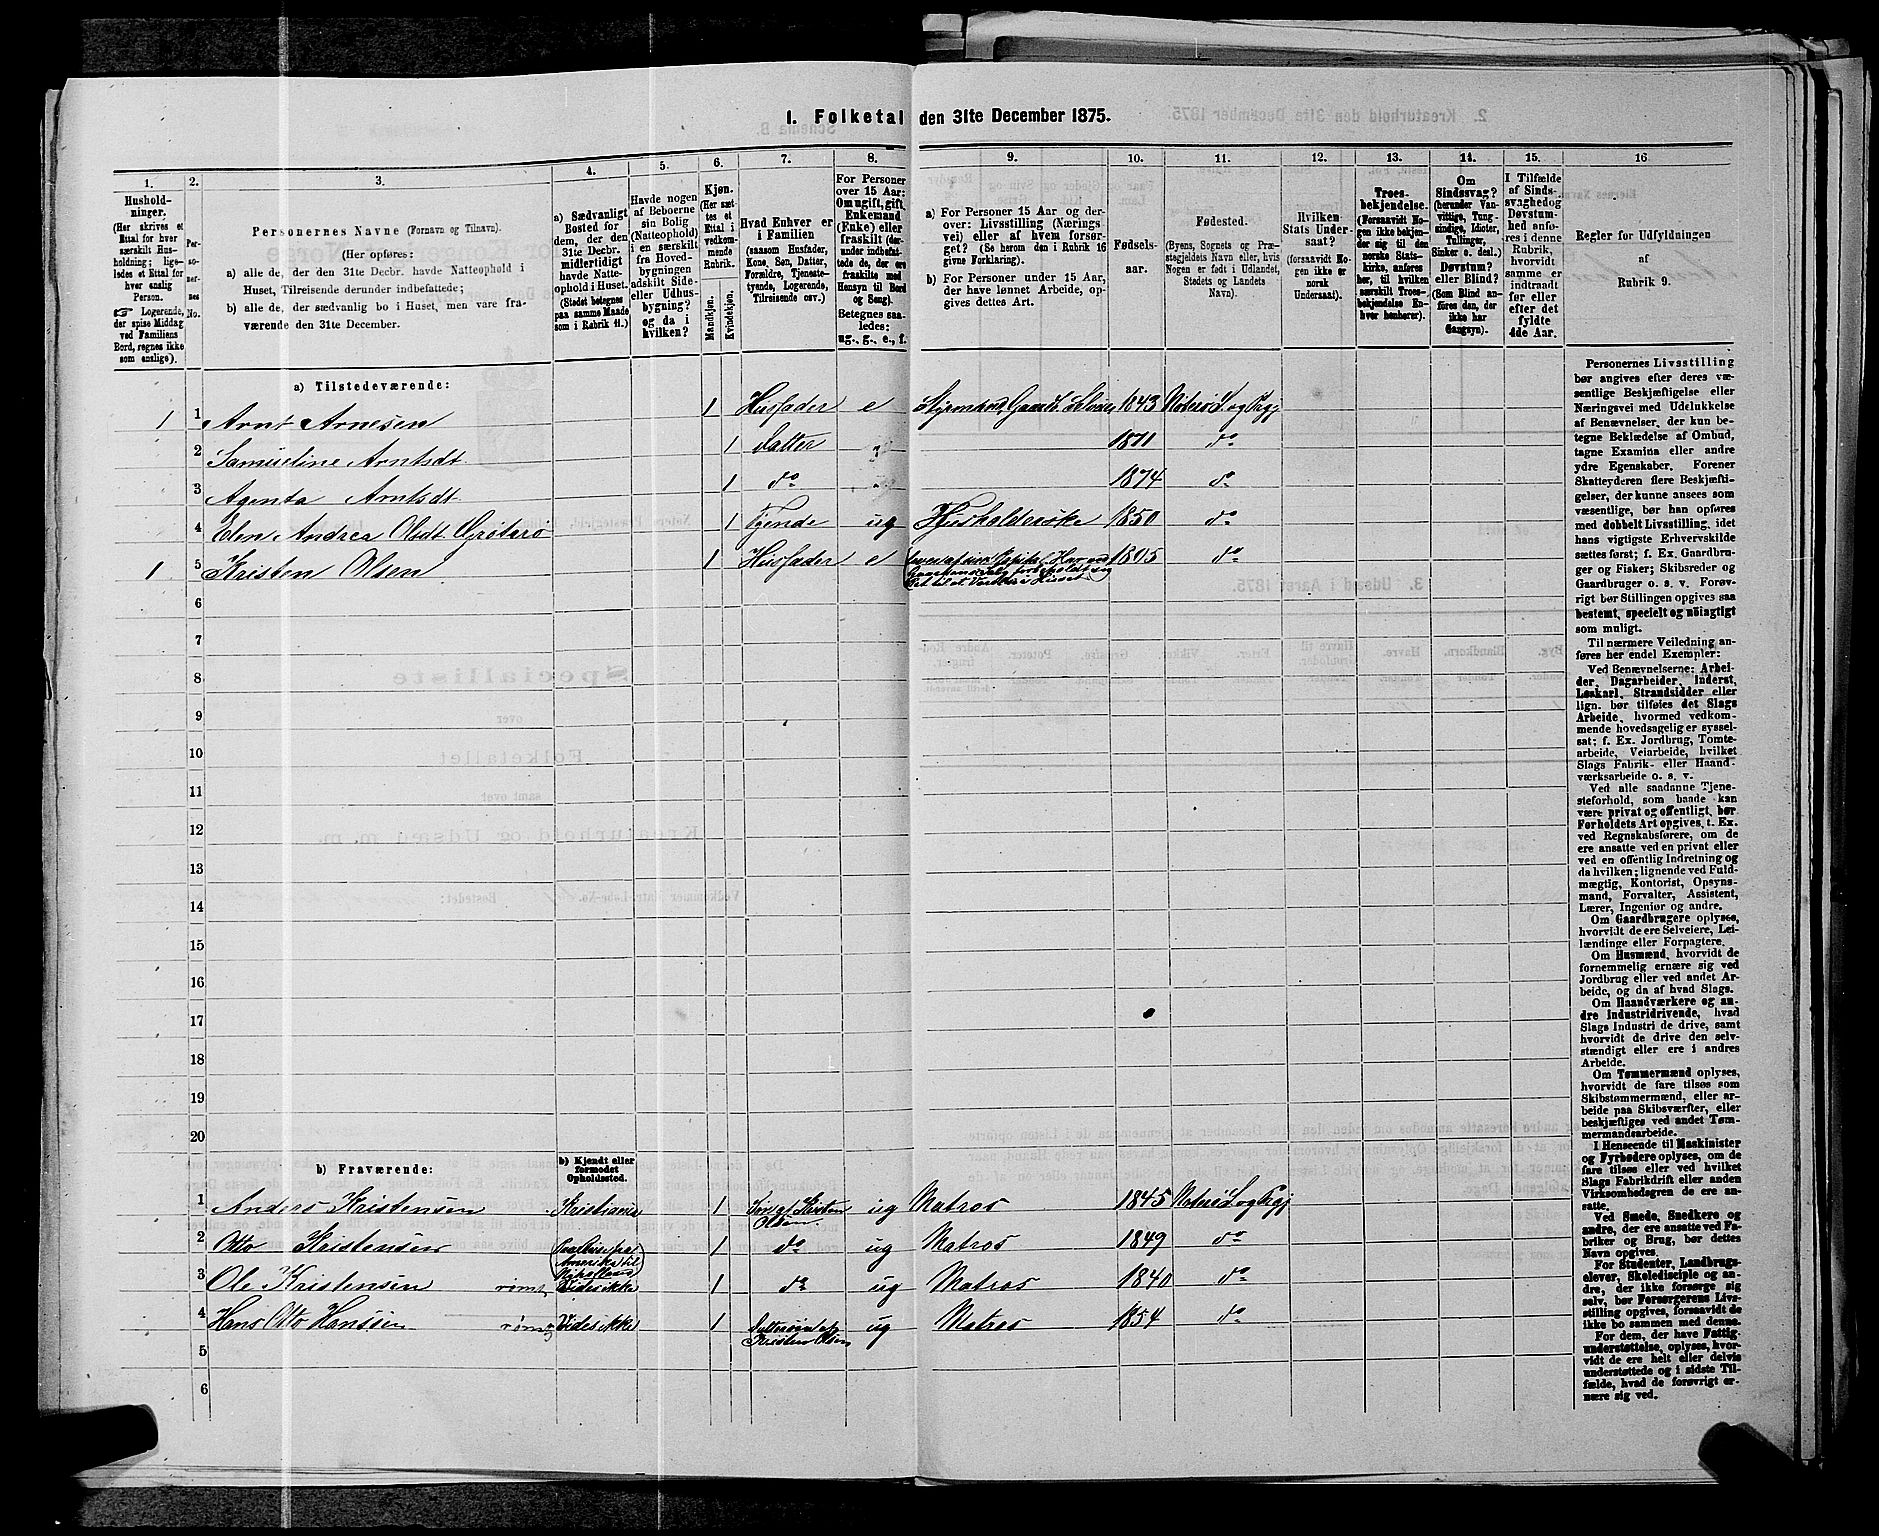 1. Folketal den 31te December 1875.
1. 2. 3. 4. 5. 6. 7. 8. 9. 10. 11. 12. 13. 14. 15. 16
Hushold-
ninger.
(Her skrives et
Ettal for hver
særskilt Hus-
holdning; lige-
ledes et Ettal for
hver enslig
Person.
☞ Logerende,
der spise Middag
ved Familiens
Bord, regnes ikke
som enslige).
Per-
so-
ner-
nes
No.
Personernes Navne (Fornavn og Tilnavn).
(Her opføres:
a) alle de, der den 31te Decbr. havde Natteophold i
Huset, Tilreisende derunder indbefattede;
b) alle de, der sædvanlig bo i Huset, men vare fra-
værende den 31te December.
a) Sædvanligt
Bosted for
dem, der den
31te Decbr.
midlertidigt
havde Natte-
ophold i Huset.
(Stedet betegnes
paa samme Maade
som i Rubrik 11.)
Havde nogen
af Beboerne
sin Bolig
(Natteophold)
i en særskilt
fra Hoved-
bygningen
adskilt Side-
eller Udhus-
bygning?
og da i
hvilken?
Kjøn.
(Her sæt-
tes et
Ettal i
vedkom-
mende
Rubrik.
Mandkjøn.
Kvindekjøn.
Hvad Enhver er
i Familien
(saasom Husfader,
Kone, Søn, Datter,
Forældre, Tjeneste-
tyende, Logerende,
Tilreisende osv.)
For Personer
over 15 Aar:
Om ugift, gift,
Enkemand
(Enke) eller
fraskilt (der-
under indbefat-
tede de, der ere
fraskilte med
Hensyn til Bord
og Seng).
Betegnes saa-
ledes:
ug., g., e., f.
a) For Personer 15 Aar og der-
over: Livsstilling (Nærings
vei) eller af hvem forsør-
get? (Se herom den i Rubrik 16
givne Forklaring).
b) For Personer under 15 Aar,
der have lønnet Arbeide, op-
gives dettes Art.
Fødsels-
aar.
Fødested.
(Byens, Sognets og Præ-
stegjeldets Navn eller, hvis
Nogen er født i Udlandet,
Stedets og Landets
Navn).
Hvilken
Stats Under-
saat?
(forsaavidt No-
gen ikke er
norsk
Undersaat).
Troes-
bekjendelse.
(Forsaavidt No-
gen ikke bekjen-
der sig til den
norske Stats-
kirke, anføres
her, til hvilken
særskilt Troes-
bekjendelse En-
hver henhører).
Om
Sindssvag?
(herunder Van-
vittige, Tung-
sindige, Idioter,
Tullinger,
Sinker o. desl.)
Døvstum?
eller Blind?
(Som Blind an-
føres den, der
ikke har
Gangsyn).
I Tilfælde
af Sinds-
svaghed og
Døvstum-
hed anfø-
res i denne
Rubrik,
hvorvidt
samme er
indtraadt
før eller
efter det
fyldte
4de Aar.
Regler for Udfyldningen
af
Rubrik 9.
a) Tilstedeværende:
1 1 Arnt Arnesen 1 Husfader e 1843 Nøterø S og Prgj
2 Samueline Arntsdt 1 datter 1871 do
3 Agenta Arntsdt 1 do 1874 do
4 Elen Andrea Olsdt Grøterø 1 Tyende ug Husholderske 1850 do
1 5 Kristen Olsen 1 Husfader e 1805 do
6
7
8
9
10
11
12
13
14
15
16
17
18
19
20
b) Fraværende:
b) Kjendt eller
formodet
Opholdssted.
1 Anders Kristensen Kristiania 1 Søn af Kristen Olsen ug Matros 1845 Nøterø S og Prgj
2 Otto Kristensen Paa Reise fra Amerika til 1 do ug Matros 1849 do
3 Ole Kristensen rømt Vides ikke 1 do ug Matros 1840 do
4 Hans Otto Hanssen rømt Vides ikke 1 Dattersøn af Kristen Olsen ug Matros 1854 do
5
6
Personernes Livsstilling
bør angives efter deres væ-
sentlige Beskjæftigelse eller
Næringsvei med Udelukkelse
af Benævnelser, der kun be-
tegne Beklædelse af Ombud,
tagne Examina eller andre
ydre Egenskaber. Forener
Skatteyderen flere Beskjæfti-
gelser, der kunne ansees som
væsentlige, bør han opføres
med dobbelt Livsstilling, idet
hans vigtigste Erhvervskilde
sættes først; f. Ex. Gaardbru-
ger og Fisker; Skibsreder og
Gaardbruger o. s. v. Forøv-
rigt bør Stillingen opgives saa
bestemt, specielt og nøiagtigt
som muligt.
Til nærmere Veiledning an-
føres her endel Exempler:
Ved Benævnelserne: Arbei-
der, Dagarbeider, Inderst,
Løskarl, Strandsidder eller
lign. bør tilføies det Slags
Arbeide, hvormed vedkom-
mende hovedsagelig er syssel-
sat; f. Ex. Jordbrug, Tomte-
arbeide, Veiarbeide, hvilket
Slags Fabrik- eller Haand-
værksarbeide o. s. v.
Ved alle saadanne Tjene-
steforhold, som baade kan
være privat og offentligt, bør
Forholdets Art opgives, t. Ex.
ved Regnskabsførere, om de
ere ansatte ved en privat eller
ved en offentlig Indretning og
da hvilken; lignende ved Fuld-
mægtig, Kontorist, Opsyns-
mand, Forvalter, Assistent,
Lærer, Ingeniør og andre.
Om Gaardbrugere oplyses,
hvorvidt de ere Selveiere, Lei-
lændinge eller Forpagtere.
Om Husmænd, hvorvidt de
fornemmelig ernære sig ved
Jordbrug eller ved andet Ar-
beide, og da af hvad Slags.
Om Haandværkere og an-
dre Industridrivende, hvad
Slags Industri de drive, samt
hvorvidt de drive den selv-
stændigt eller ere i andres
Arbeide.
Om Tømmermænd oplyses,
hvorvidt de fare tilsøs som
Skibstømmermænd, eller ar-
beide paa Skibsværfter, eller
beskjæftiges ved andet Tøm-
mermandsarbeide.
I Henseende til Maskinister
og Fyrbødere oplyses, om de
fare tilsøs eller ved hvilket
Slags Fabrikdrift eller anden
Virksomhedsgren de ere an-
satte.
Ved Smede, Snedkere og
andre, der ere ansatte ved Fa-
briker og Brug, bør dettes
Navn opgives.
For Studenter, Landbrugs-
elever, Skoledisciple og an-
dre, der ikke forsørge sig
selv, bør Forsørgerens Livs-
stilling opgives, forsaavidt de
ikke bo sammen med denne.
For dem, der have Fattig-
understøttelse, oplyses, hvor-
vidt de ere helt eller delvis
understøttede og i sidste Til-
fælde, hvad de forøvrigt er-
nære sig ved.